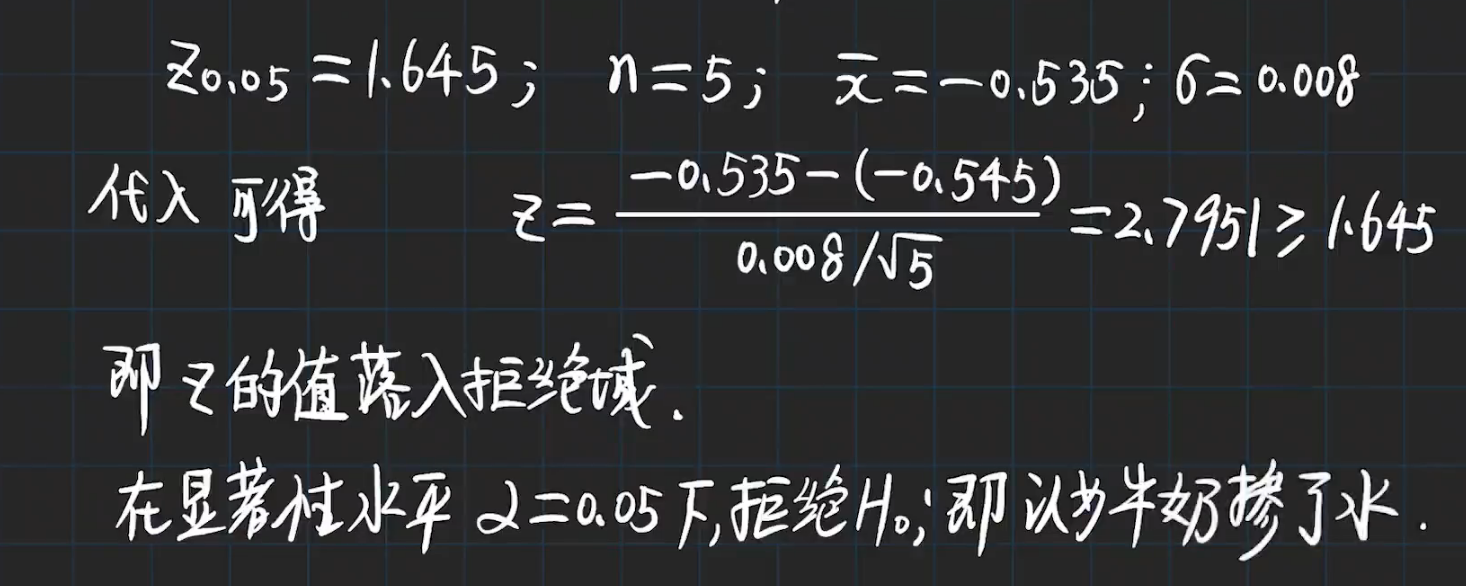 z₀.₀₅=1.645; n=5; x̄=-0.535; σ=0.008
代入可得 z= (-0.535-(-0.545))/(0.008/√5) =2.7951≥1.645
即z的值落入拒绝域.
在显著性水平 α=0.05下,拒绝H₀;即认为牛奶掺了水.